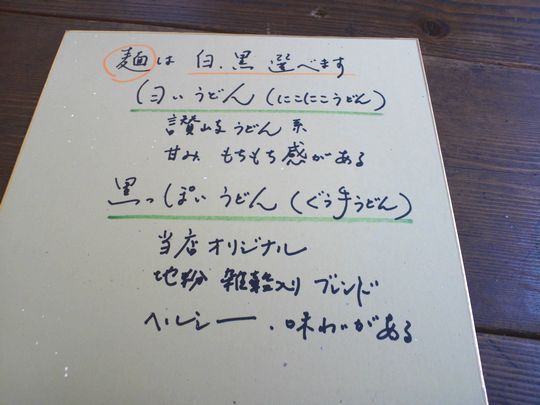 麺は 白、黒 選べます
白いうどん (にこにこうどん)
讃岐うどん系
甘み もちもち感がある
黒っぽいうどん (ぐう手うどん)
当店オリジナル
地粉 雑穀入り ブレンド
ヘルシー、味わいがある